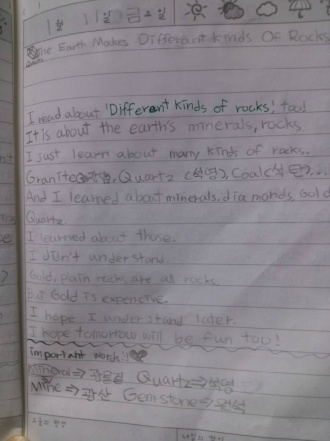 1월 11일 금요일
The Earth Makes Different Kinds Of Rocks
I read about 'Different kinds of rocks' too!
It is about the earth's minerals, rocks.
I just learn about many kinds of rocks.
Granite, Quartz (석영), Coal(석탄)...
And I learned about minerals, diamonds, Gold
Quartz.
I learned about those.
I didn't understand.
Gold, pain rocks are all rocks
But Gold is expencive.
I hope I understand later.
I hope tomorrow will be fun too!
important words!!
Mineral ⇒ 광물질 Quartz ⇒ 석영
Mine ⇒ 광산 Gemstone ⇒ 원석